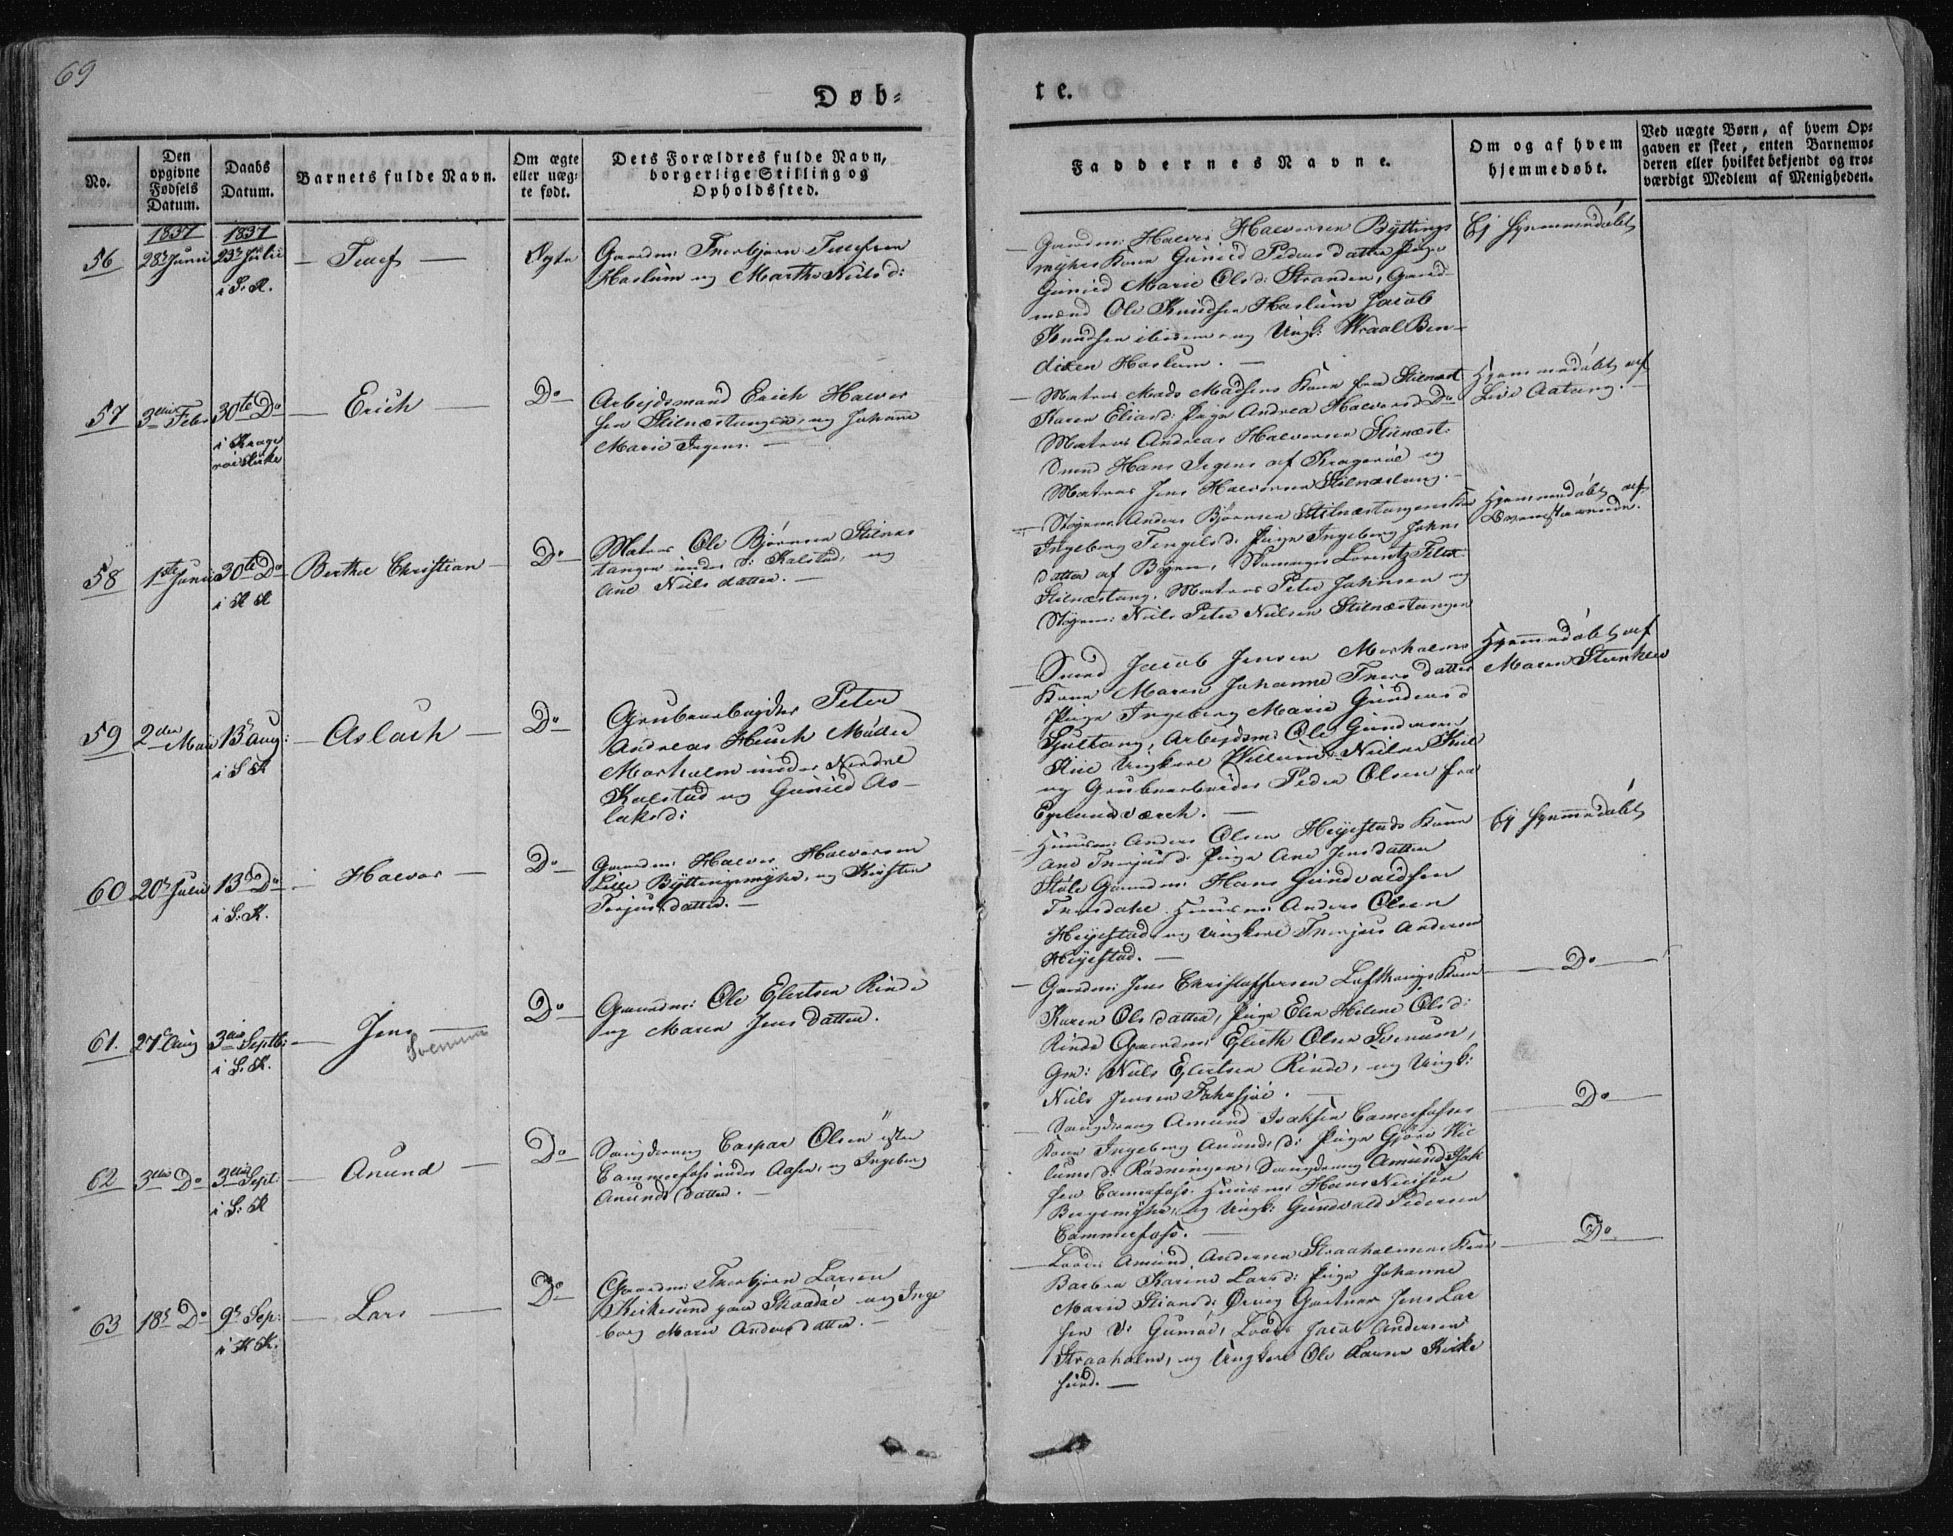 69
Døb=
te.
No.
Den opgivne Fødsels Datum.
Daabs Datum.
Barnets fulde Navn.
Om ægte eller uæg= te født.
Dets Forældres fulde Navn, borgerlige Stilling og Opholdssted.
Faddernes Navne.
Om og af hvem hjemmedøbt.
Ved uægte Børn, af hvem Op= gaven er skeet, enten Barnemo= deren eller hvilket bekjendt og tro= værdigt Medlem af Menigheden.
1837 1837
56 28de Junii 23de Julii
i S. K.
Ægte
Haslum og Marthe Nielsd:
Gaardm: Halvor Halvorsen Byttings
myhrs Kone Gunild Peders datter Pige
Gunild Marie Olsd: Stranden, Gaard-
mænd Ole Knudsen Haslum Jacob
Knudsen ibidem og Ungk: Wraal Ben-
dixen Haslum. —
Ej hjemmedøbt
57 3die Febr 30te Do
i Krage
røe Kirke
— Erich —
Do
Arbejdsmand Erich Halvor
sen Stilnæstangen, og Johanne
Marie Jegens. —
— Matros Mads Madsens Kone fra Stilnæst
Karen Eliasd: Pige Andrea Halvorsd Do
Matros Andreas Halvorsen Stilnæst:
Smed Hans Jegens af Kragerøe og
Matros Jens Halvorsen Stilnæstang. —
Hjemmedøbt af
Live Aatang. —
58 1ste Junii 30te Do
i K K
Berthe Christian —
Do
Matros Ole Bjørnsen Stilnæs
tangen under S: Kalstad og
Ane Niels datter. —
Anders Bjørnsen Stilnæstangens Kone
Ingeborg Tengelsd: Pige Ingeborg Johns
datter af Byen, Lorentz
Stilnæstang, Matros Peter Johnsen og
Niels Peter Nielsen Stilnæstangen
Hjemmedøbt af
59 2den Maii 13de Aug:
i S K
— Aslach —
Do
Grubearbejder Peter
Andreas Heuch Müller
Morholm under Nordre
Kalstad og Gunild As-
laksd:
— Smed Jacob Jensen Morholms
Kone Maren Johanne Thors datter
Pige Ingeborg Marie Gunders d
Arbejdsm: Ole Gundersen
Kiil Ungkarl Willum Nielsen Kiil
og Grubearbeider Peder Olsen fra
Egelundsværch. —
Hjemmedøbt af
Maren Steenkler
60 20de Julii 13de Do
i S. K.
— Halvor —
Do
Gaardm: Halvor Halvorsen
Lille Byttingsmyhr, og Kirsten
Torjus datter. —
— Huusm: Anders Olsen Heyestads Kone
Ane Thorjusd: Pige Ane Jens datter
Støle Gaardm: Hans Gundvaldsen
Huusm: Anders Olsen
Heyestad, og Ungkarl Thorjus Andersen
Heyestad. —
Ej hjemmedøbt
61. 27de Aug 3die Septb:
i S. K.
— Jens —
Do
Gaardm: Ole Ejlertsen Rinde
og Maren Jens datter.
— Gaardm: Jens Christoffersen Lofthougs Kone
Karen Ols datter, Pige Elen Helene Olsd:
Rinde Gaardm: Ejlerth Olsen Svenum,
Gm: Niels Ejlertsen Rinde, og Ungk:
Niels Jensen
— Do —
62 3die Do 3die Sept
i S: K
— Anund —
Do
Saugdreng Caspar Olsen
Cammerfoss under Aasen, og Ingeborg
Anunds datter. —
— Saugdreng Amund Isaksen Camerfosses
Kone Ingeborg Anunds d: Pige Gjøri Wil
lumsd: Rødningen, Saugdreng Amund Isak
sen Camerfoss. Huusm: Hans Nielsen
Bergsmyhr, og Ungk: Gundvald Pedersen
Cammerfoss. —
— Do —
63 18de Do 9de Sep:
i K K.
— Lars —
Do
Gaardm: Thorbjørn Larsen
Kirkesund paa Skaadøe og Inge
borg Marie Anders datter. —
— Lods Amund Andersen Straaholmens Kone
Barbra Karine Larsd: Pige Johanne
Marie Gartner Jens Lar
sen V: Gumøe, Lods Jacob Andersen
Straaholm, og Ungkarl Ole Larsen Kirke
sund. —
— Do —